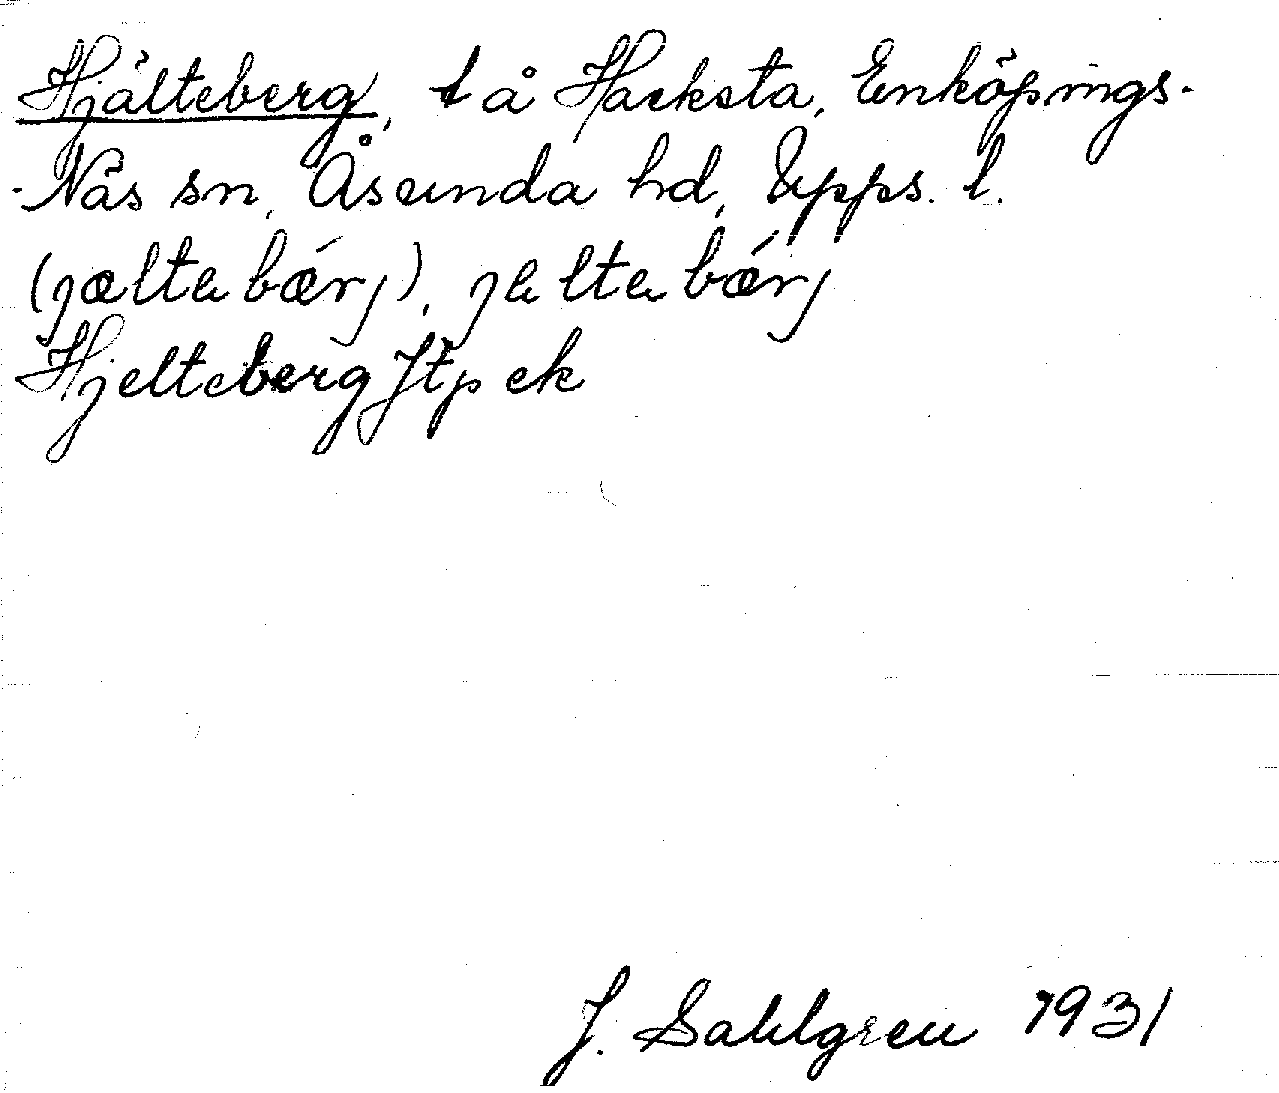 Hjälteberg, t å Hacksta, Enköpings-
-Näs sn, Åsunda hd, Upps. l.
(jæltebǽrj), jeltebǽrj
Hjelteberg Jtp ek
J. Sahlgren 1931